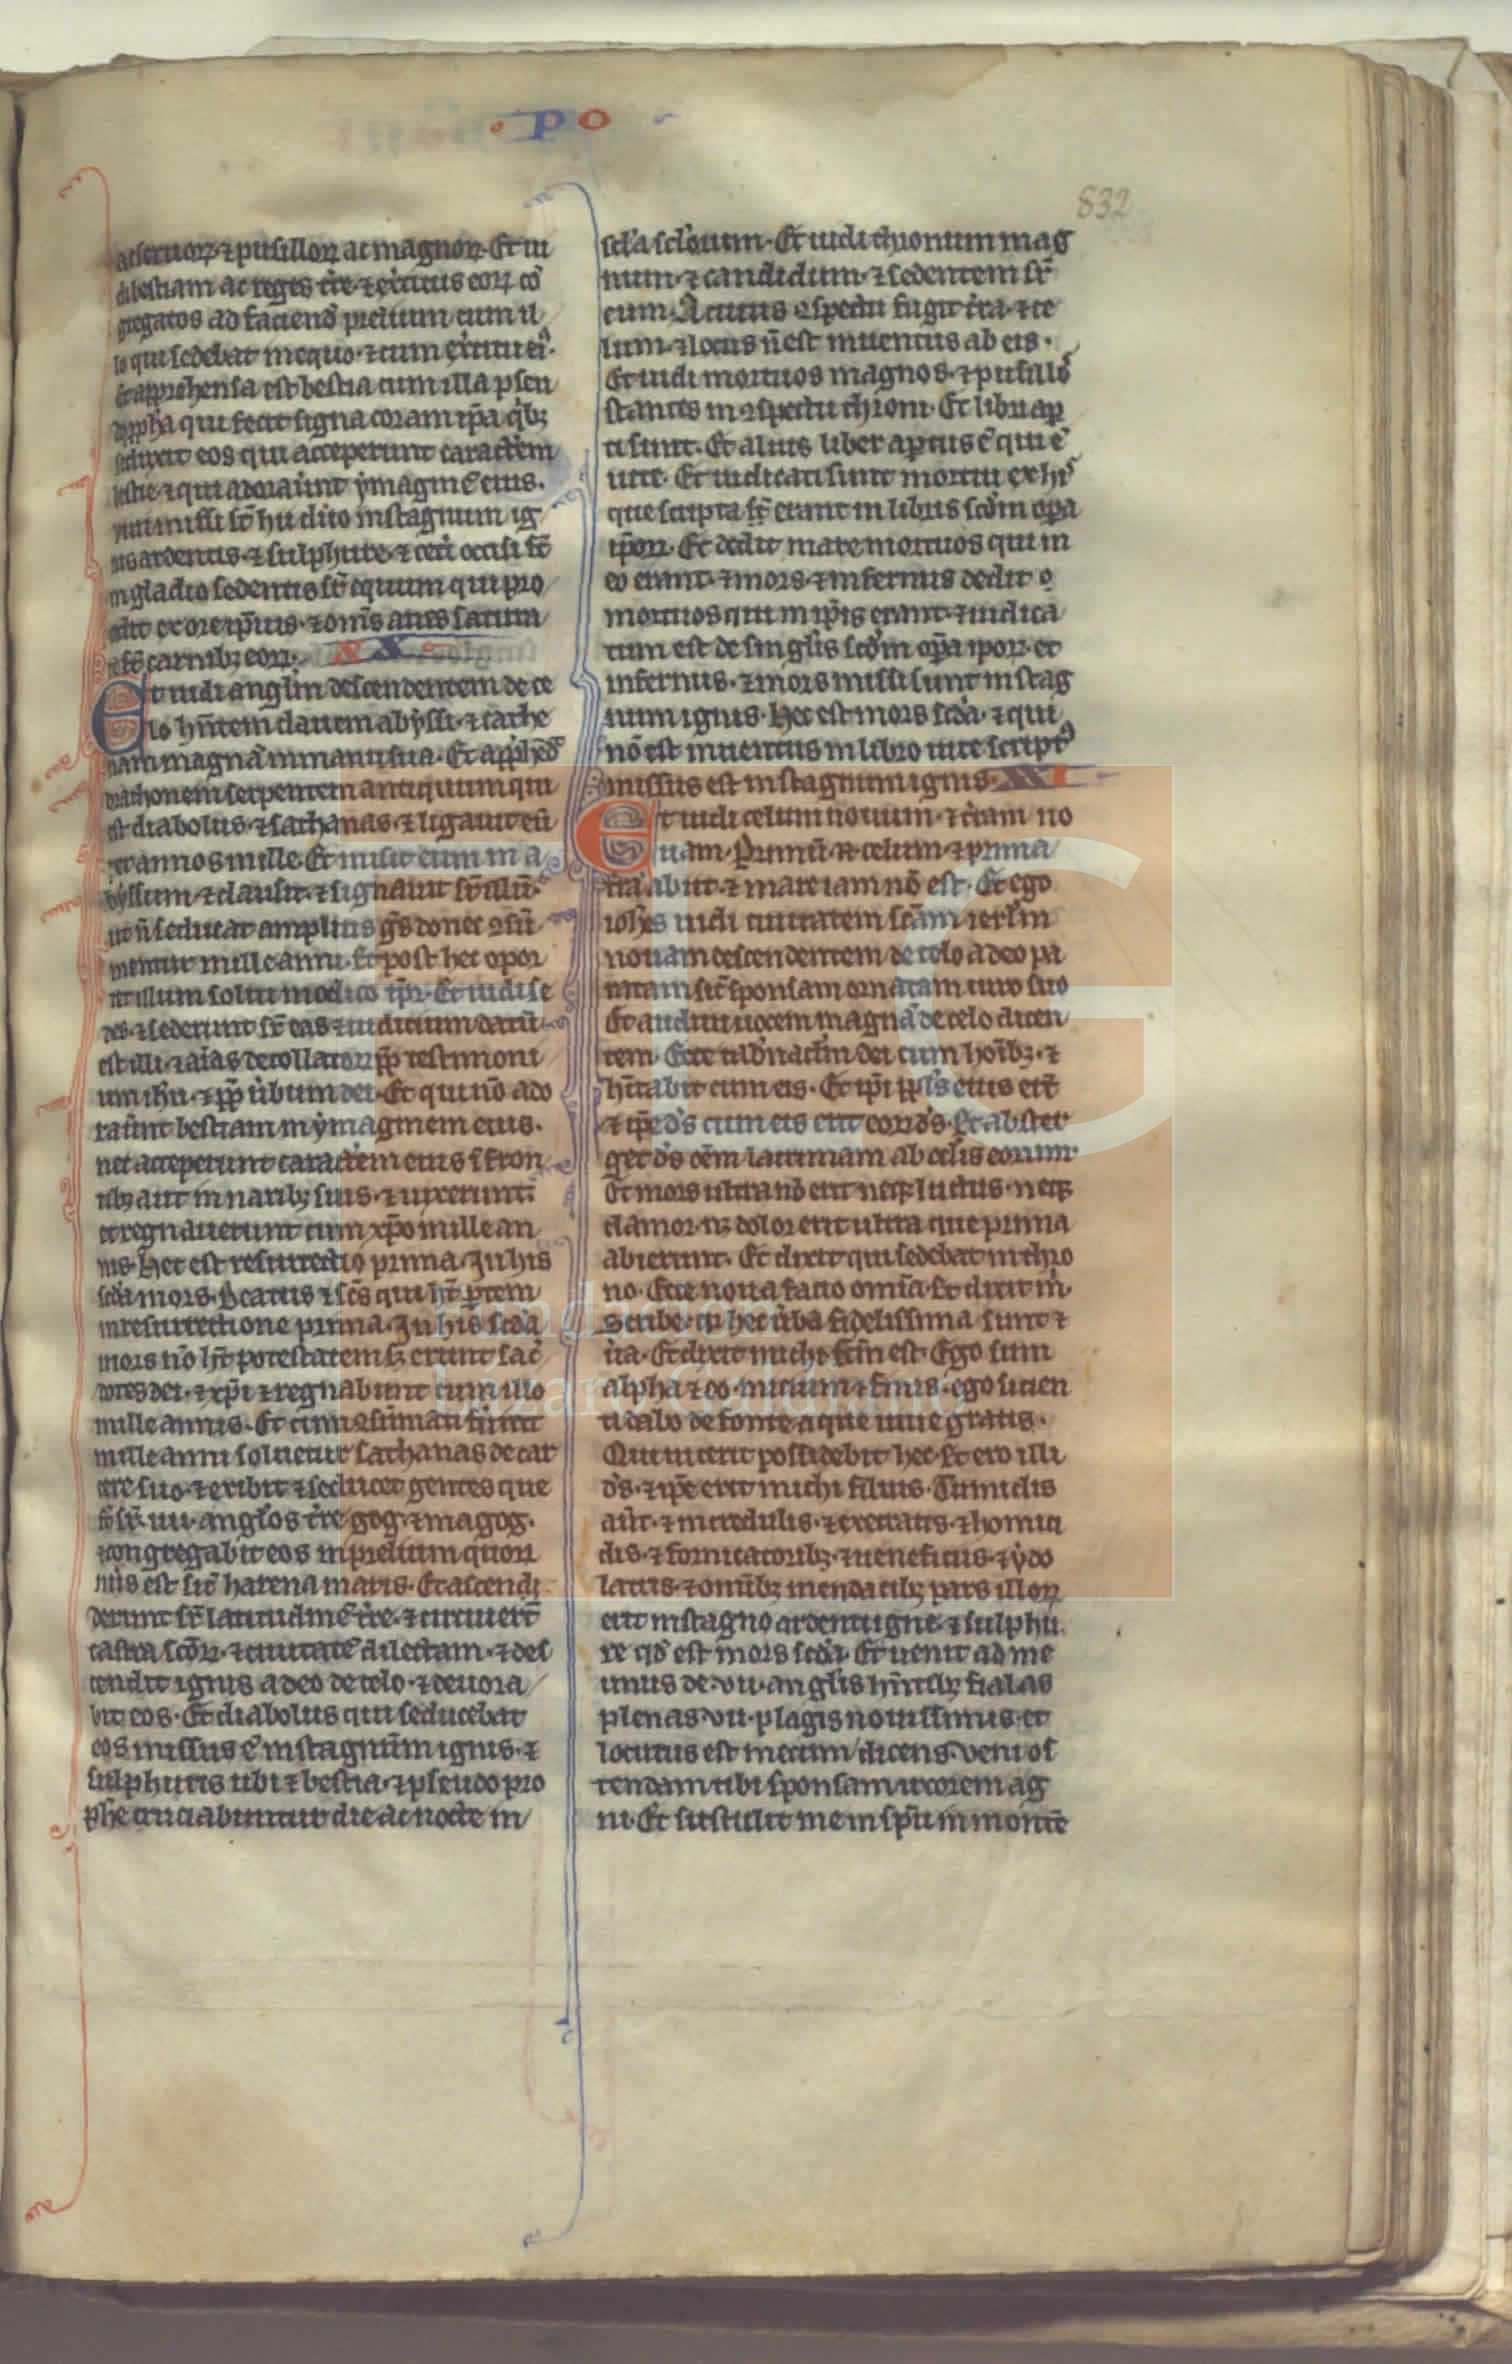 PO
832
ac seruoꝝ ⁊ pusilloꝝ ac magnoꝝ. Et ui
di bestiam ac reges tr̄e ⁊ ex̄citus eoꝝ cō
gregatos ad faciend̄ prelium cum il
lo qui sedebat in equo ⁊ cum ex̄citu ei᷒.
Et apprehensa est bestia cum illa pseu
do ꝓph̄a qui fecit signa coram ip̄a qͥbꝫ
seduxit eos qui acceperunt caractem
bestie ⁊ qui adorauer̄t ymaginē eius.
viui missi st̄ hii duo in stagnum ig
nis ardentis ⁊ sulphure ⁊ cet̄i occisi st̄
in gladio sedentis sr̄ equum qui pro
cedit ex ore ip̄ius ⁊ om̄s aues saturate
st̄ carnibꝫ eoꝝ. XX
Et uidi anglm̄ descendentem de ce
lo hn̄tem clauem abyssi ⁊ cathe
nam magnā in manu sua. Et app̄hēd̄
drachonem serpentem antiquum qui
est diabolus ⁊ sathanas ⁊ ligauit eū
per annos mille. Et misit eum in a
byssum ⁊ clausit ⁊ signauit sr̄ illū.
ut n̄ seducat amplius gn̄s donec ꝯsū
mentur mille anni. Et post hec opor
tet illum solui modico tp̄r. Et uidi se
des ⁊ sederunt sr̄ eas ⁊ iudicium datū
est illi ⁊ aīas decollatoꝝ ꝓp̄ testimoni
um ihū ⁊ ꝓp̄ uerbum dei. Et qui nō ado
rauer̄t bestiam in ymaginem eius.
nec acceperunt caractem eius ī fron
tibꝫ aut in manibꝫ suis ⁊ uixerunt
et regnauerunt cum xp̄o mille an
nis. Hec est resurrectio prima. In his
scda mors. Beatus ⁊ scs̄ qui ht̄ partem
in resurrectione prima. In his scda
mors nō ht̄ potestatem sꝫ erunt sac̄
dotes dei ⁊ xp̄i ⁊ regnabunt cum illo
mille annis. Et cum ꝯsūmati fuerint
mille anni soluetur sathanas de car
cere suo ⁊ exibit ⁊ seducet gentes que
st̄ sr̄ iiii anglos tr̄e gog ⁊ magog.
⁊ congregabit eos in prelium quoꝝ
nūs est sic̄ harena maris. Et ascendi
derunt sr̄ latitudinē tr̄e ⁊ circuier̄t
castra scōꝝ ⁊ ciuitatē dilectam ⁊ des
cendit ignis a deo de celo ⁊ deuora
uit eos. Et diabolus qui seducebat
eos missus ē in stagnum ignis ⁊
sulphuris ubi ⁊ bestia ⁊ pseudo pro
phe cruciabuntur die ac nocte in
scl̄a scl̄orum. Et uidi thronum mag
num ⁊ candidum ⁊ sedentem sr̄
eum. A cuius ꝯspectu fugit tr̄a ⁊ ce
lum ⁊ locus n̄ est inuentus ab eis.
Et uidi mortuos magnos ⁊ pusillos
stantes in ꝯspectu throni. Et libri aꝑ
ti sunt. Et alius liber aꝑtus ē qui ē
uite. Et iudicati sunt mortui ex his
que scripta st̄ erant in libris scd̄m oꝑa
ip̄oꝝ. Et dedit mare mortuos qui in
eo erant ⁊ mors ⁊ infernus dederūt
mortuos qui in ip̄is erant ⁊ iudica
tum est de singlis scd̄m oꝑa ipoꝝ. et
infernus ⁊ mors missi sunt in stag
num ignis. Hec est mors scda ⁊ qui
nō est inuentus in libro uite script᷒
missus est in stagnum ignis. XXI
Et uidi celum nouum ⁊ tr̄am no
uam. Primū n̄ celum ⁊ prima
tr̄a abiit ⁊ mare iam nō est. Et ego
ioh̄es uidi ciuitatem scām ierl̄m
nouam descendentem de celo a deo pa
ratam sic̄ sponsam ornatam uiro suo
Et audiui uocem magnā de celo dicen
tem. Ecce tab̄naclm̄ dei cum hoībꝫ ⁊
hītabit cum eis. Et ip̄i ppl̄s eius er̄t
⁊ ip̄e ds̄ cum eis erit eoꝝ ds̄. Et abster
get ds̄ oēm lacrimam ab oclis eorum
Et mors ultra nō erit neqꝫ luctus neqꝫ
clamor nꝫ dolor erit ultra que prima
abierunt. Et dixit qui sedebat in thro
no. Ecce noua facio omīa. Et dixit m̄
scribe qꝛ hec uerba fidelissima sunt ⁊
ūa. Et dixit michi. fcm̄ est. Ego sum
alpha ⁊ ω. inicium ⁊ finis. ego sicien
ti dabo de fonte aque uiue gratis.
Qui uicerit possidebit hec. Et ero illi
ds̄ ⁊ ip̄e erit michi filius. Timidis
aūt ⁊ incredulis ⁊ execratis ⁊ homici
dis ⁊ fornicatoribꝫ ⁊ ueneficis ⁊ ydo
latris ⁊ omībꝫ mendacibꝫ pars illoꝝ
erit in stagno ardenti igne ⁊ sulphu
re qd̄ est mors scda. Et uenit ad me
unus de vii anglis hn̄tibꝫ fialas
plenas vii plagis nouissimis. et
locutus est mecum dicens. veni os
tendam tibi sponsam uxorem ag
ni. Et sustulit me in spū in monte
Fundación
Lázaro Galdiano